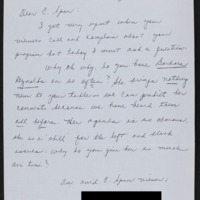 Dear C. Span:
I get very upset when your
viewers call and complain about your
program but today I must ask a question.
Why oh why, do you have Barbara
Reynolds on so often? She brings nothing
new to your table - we can predict her
comments because we have heard them
all before. Her agenda is so obvious,
she is a shill for the left and black
issues. Why do you give her so much
air time?
An avid C. Span viewer,